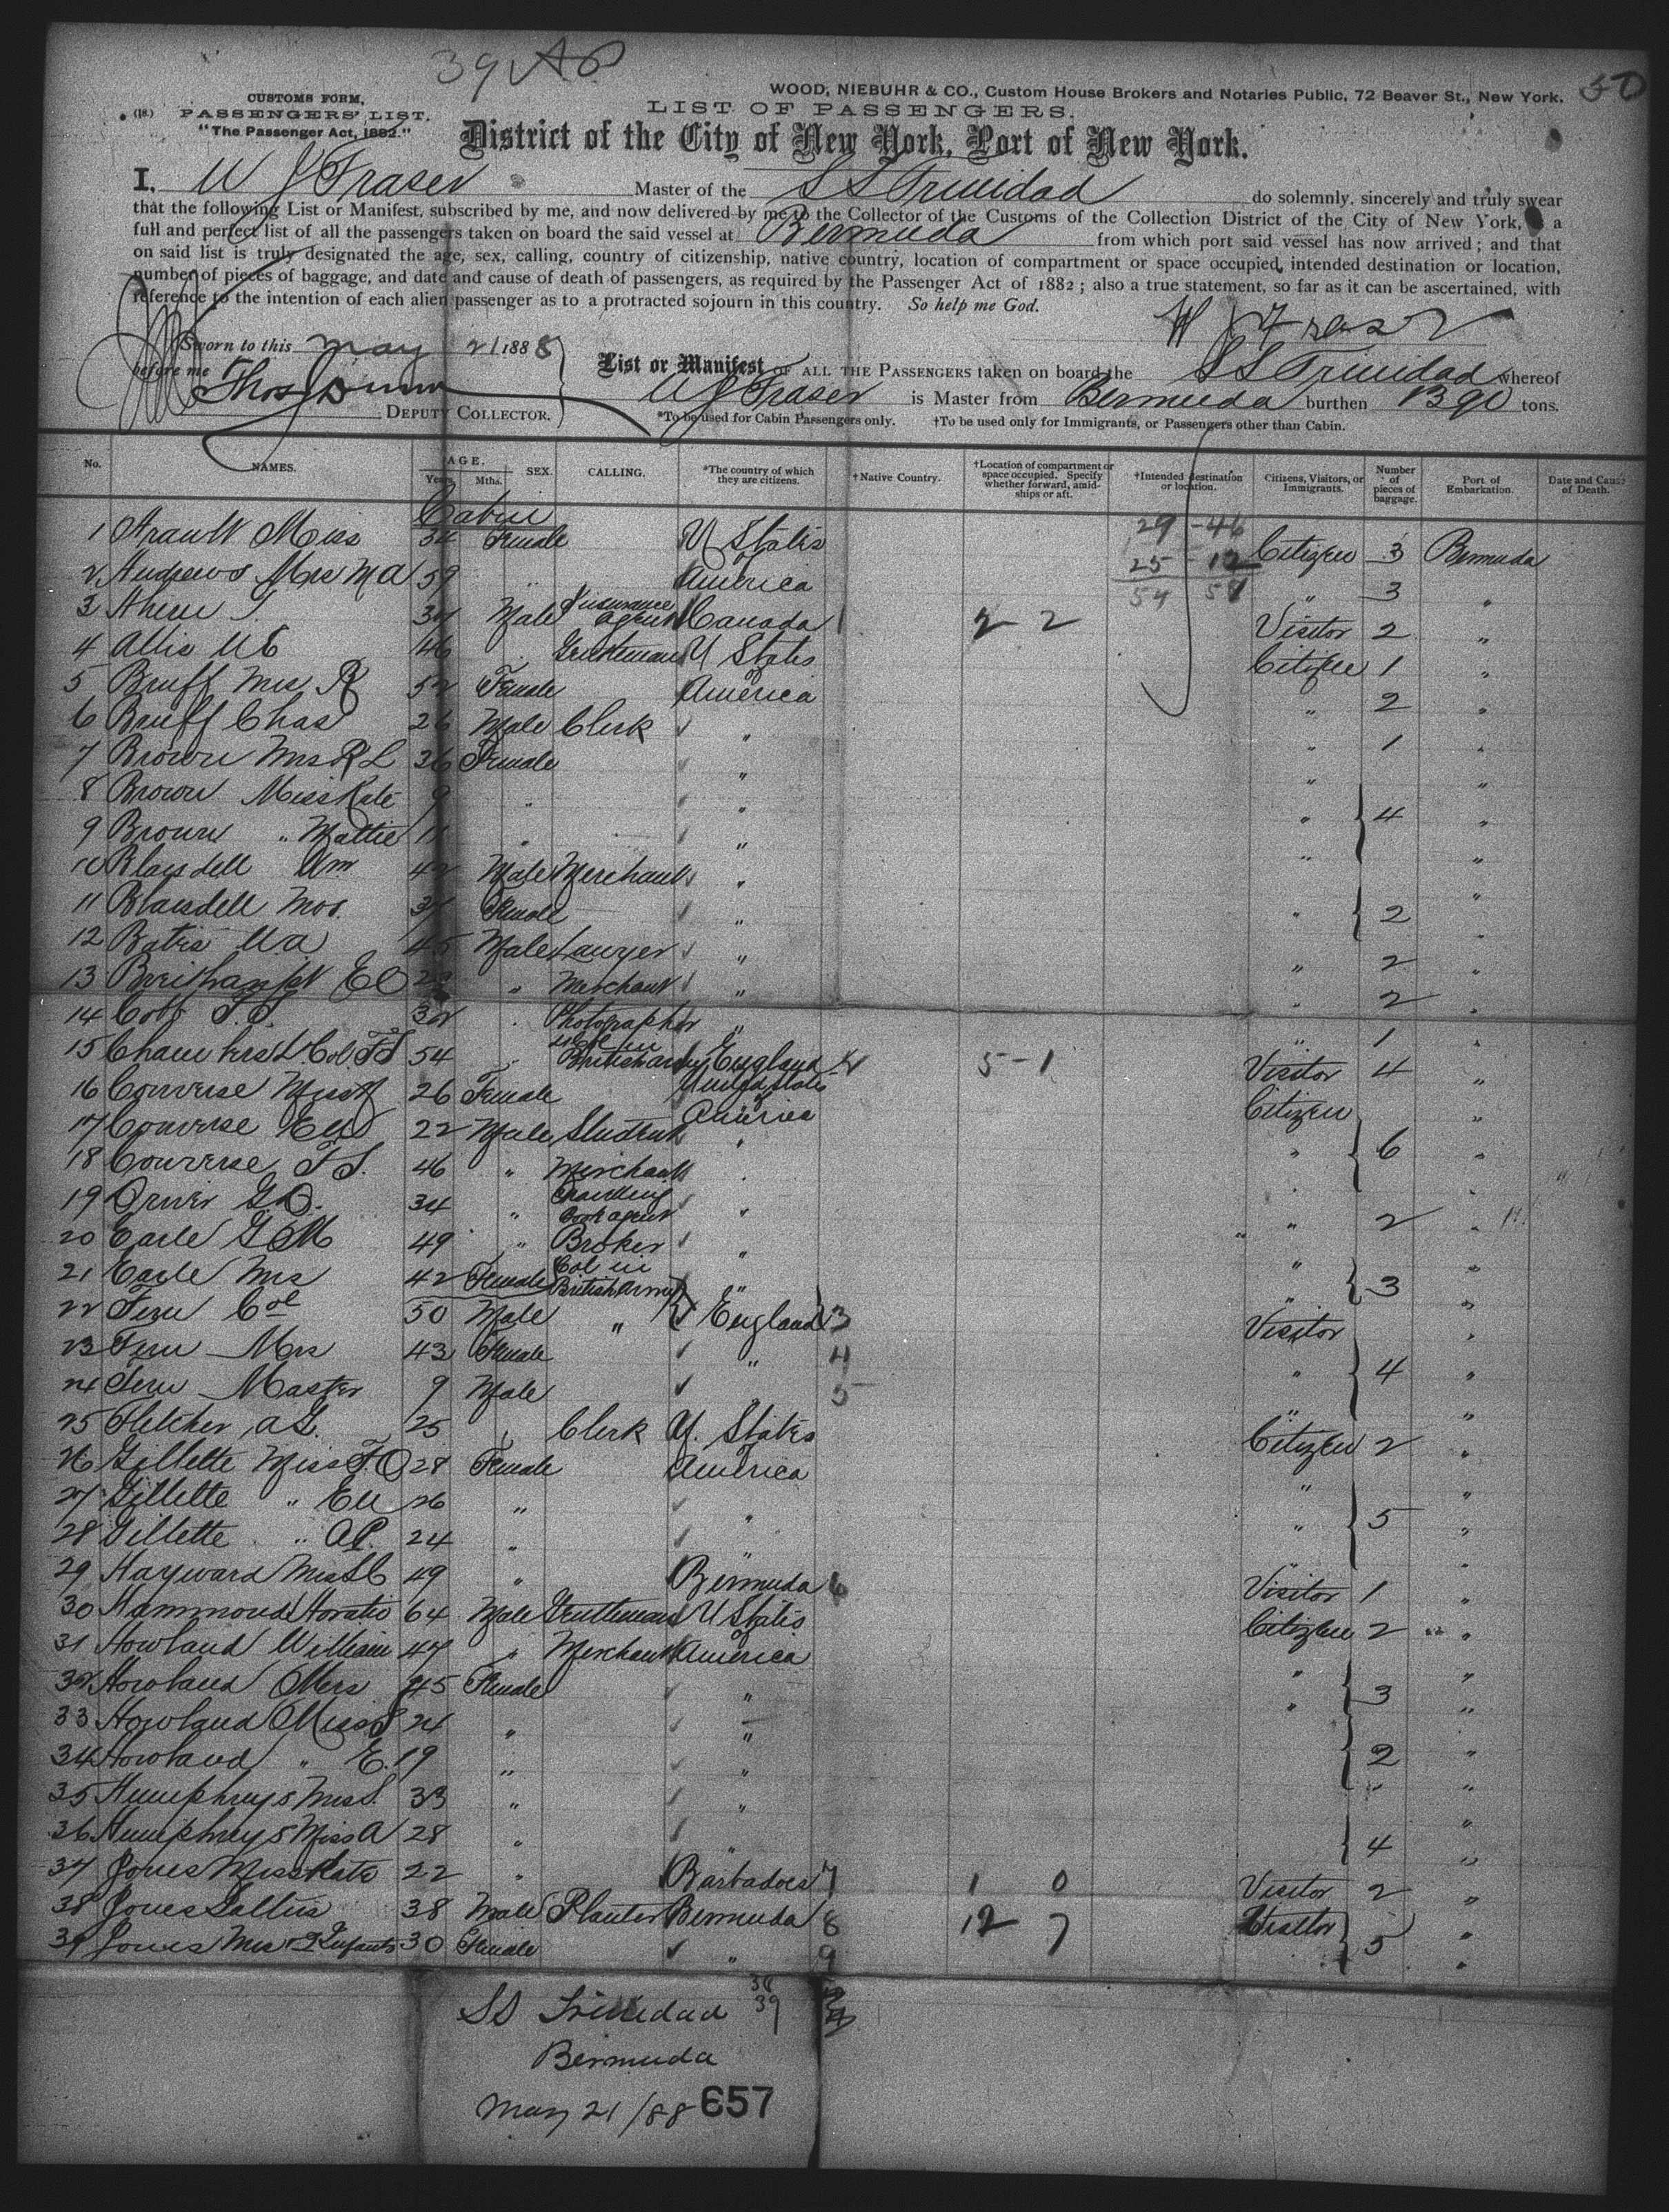 39
50
CUSTOMS FORM,
WOOD, NIEBUHR & CO., Custom House Brokers and Notaries Public, 72 Beaver St., New York.
(18.) PASSENGERS' LIST.
LIST OF PASSENGERS.
"The Passenger Act, 1882."
District of the City of New York, Port of New York.
I, W J Fraser Master of the S S Trinidad do solemnly, sincerely and truly swear
that the following List or Manifest, subscribed by me, and now delivered by me to the Collector of the Customs of the Collection District of the City of New York, is a
full and perfect list of all the passengers taken on board the said vessel at Bermuda from which port said vessel has now arrived; and that
on said list is truly designated the age, sex, calling, country of citizenship, native country, location of compartment or space occupied, intended destination or location,
number of pieces of baggage, and date and cause of death of passengers, as required by the Passenger Act of 1882; also a true statement, so far as it can be ascertained, with
reference to the intention of each alien passenger as to a protracted sojourn in this country. So help me God.
W J Fraser
Sworn to this May 21 1888
before me
Thos Dunn
DEPUTY COLLECTOR.
List or Manifest OF ALL THE PASSENGERS taken on board the S S Trinidad whereof
W J Fraser is Master from Bermuda burthen tons.
*To be used for Cabin Passengers only. †To be used only for Immigrants, or Passengers other than Cabin.
No. NAMES. AGE. Years Mths. SEX. CALLING. *The country of which they are citizens. †Native Country. †Location of compartment or space occupied. Specify whether forward, amidships or aft. †Intended destination or location. Citizens, Visitors, or Immigrants. Number of pieces of baggage. Port of Embarkation. Date and Cause of Death.
Cabin
29 - 46
25 - 12
54 58
1 Miss 34 Female U States Citizen 3 Bermuda
2 Andrews Mrs M A 59 " of America " 3 "
3 Ahern 34 Male Insurance agent Canada 1 2 2 Visitor 2 "
4 Allis W E 46 Gentleman U States Citizen 1 "
5 Bruff Mrs R 52 Female America " 2 "
6 Bruff Chas 26 Male Clerk " " 1 "
7 Brown Mrs R L 36 Female " " "
8 Brown Miss Kate 9 " " " 4 "
9 Brown " Mattie 11 " " " "
10 Blaisdell Wm 42 Male Merchant " "
11 Blaisdell Mrs. 37 Female " " 2 "
12 Bates W a 45 Male Lawyer " " 2 "
13 Breithaupt E O " Merchant " " 2 "
14 Cobb 32 Photographer " " 1 "
15 Chambers Lt Col. 54 British army England 5 - 1 Visitor 4 "
16 Converse Miss 26 Female United States of America Citizen "
17 Converse 22 Male Student " " 6 "
18 Converse F S. 46 " Merchant " " "
19 34 " Book agent " " 2 "
20 Earle G M 49 " Broker " " "
21 Earle Mrs 42 Female " " 3 "
22 Fenn Col 50 Male Col in British Army England 3 Visitor "
23 Fenn Mrs 43 Female " 4 " 4 "
24 Fenn Master 9 Male 5 " "
25 Fletcher a L. 25 " Clerk U. States Citizen 2 "
26 Gillette Miss F. O 28 Female America " "
27 Gillette " 26 " " " 5 "
28 Gillette " A P. 24 " " " "
29 Hayward 49 " Bermuda 6 Visitor 1 "
30 Hammond Horatio 64 Male Gentleman U States Citizen 2 "
31 Howland William 47 " Merchant of America " "
32 Howland Mrs 45 Female " " 3 "
33 Howland Miss S 24 " " "
34 Howland " E. 19 " " 2 "
35 Humphreys Mrs S. 33 " " " "
36 Humphreys Miss A 28 " " 4 "
37 Jones Miss Kate 22 " Barbadoes 7 1 0 Visitor 2 "
38 Jones 38 Male Planter Bermuda 8 12 7 Visitor "
39 Jones Mrs & 2 Infants 30 Female " 9 " 5 "
38
39
SS Trinidad
Bermuda
May 21/88 657